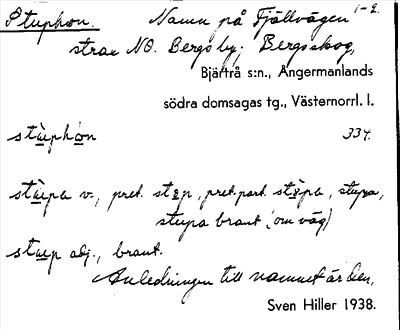 Stuphon. Namn på Fjällvägen 1-2.
strax NO. Bergs by. Bergsskog,
Bjärtrå s:n., Ångermanlands
södra domsagas tg., Västernorrl. l.
stùphòn 334.
stùpa v., pret. støp, pret.part. støpa, stupa,
stupa brant (om väg)
stup adj., brant.
Anledningen till namnet är den,
Sven Hiller 1938.